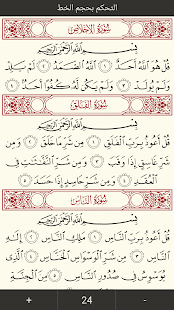 التحكم بحجم الخط
سُورَةُ الإِخْلَاصِ
بِسْمِ اللَّهِ الرَّحْمَٰنِ الرَّحِيمِ
قُلْ هُوَ اللَّهُ أَحَدٌ ١ اللَّهُ الصَّمَدُ ٢ لَمْ يَلِدْ
وَلَمْ يُولَدْ ٣ وَلَمْ يَكُن لَّهُ كُفُوًا أَحَدٌ ٤
سُورَةُ الفَلَقِ
بِسْمِ اللَّهِ الرَّحْمَٰنِ الرَّحِيمِ
قُلْ أَعُوذُ بِرَبِّ الْفَلَقِ ١ مِن شَرِّ مَا خَلَقَ ٢ وَمِن
شَرِّ غَاسِقٍ إِذَا وَقَبَ ٣ وَمِن شَرِّ النَّفَّاثَاتِ فِي
الْعُقَدِ ٤ وَمِن شَرِّ حَاسِدٍ إِذَا حَسَدَ ٥
سُورَةُ النَّاسِ
بِسْمِ اللَّهِ الرَّحْمَٰنِ الرَّحِيمِ
قُلْ أَعُوذُ بِرَبِّ النَّاسِ ١ مَلِكِ النَّاسِ ٢ إِلَٰهِ
النَّاسِ ٣ مِن شَرِّ الْوَسْوَاسِ الْخَنَّاسِ ٤ الَّذِي
يُوَسْوِسُ فِي صُدُورِ النَّاسِ ٥ مِنَ الْجِنَّةِ
+ 24 -